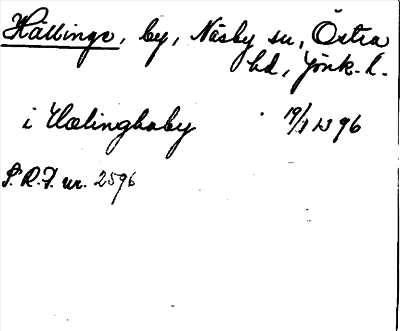 Hällinge, by, Näsby sn, Östra
hd, Jönk. l.
i Hælinghaby 19/1 1396
S.R.P. nr. 2596